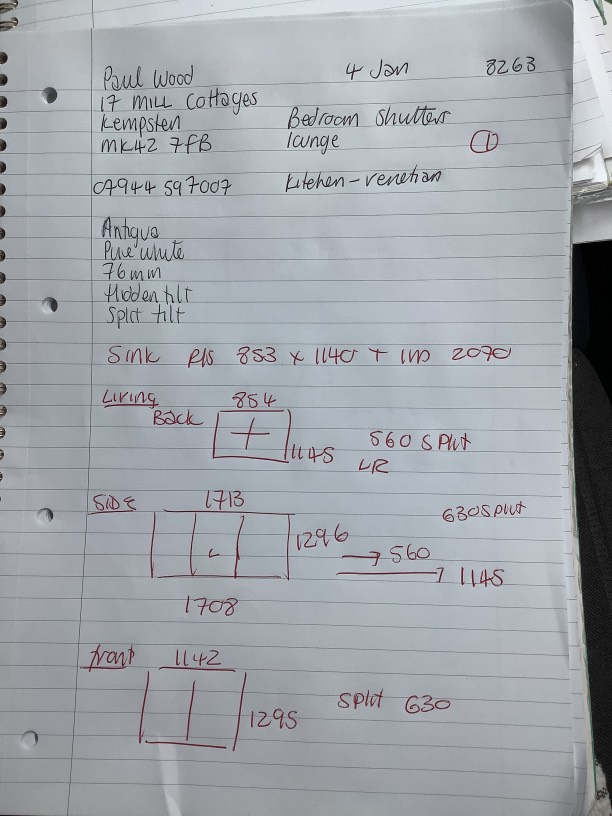 Paul Wood 4 Jan 8263
17 Mill Cottages
Kempsten Bedroom Shutters
MK42 7FB lounge 1
07944 597007 Kitchen - venetian
Antigua
Pure white
76mm
Hidden tilt
Split tilt
Sink R/S 853 x 1140 + 1110 2070
Living 854
Back 1145 560 Split
LR
Side 1713 630 Split
1296 → 560
→ 1145
1708
front 1142
1295 Split 630